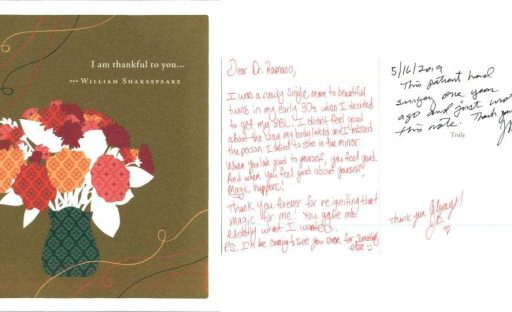 I am thankful to you...
--- WILLIAM SHAKESPEARE
Dear Dr. Romano,
I was a newly single mom to beautiful
twins in my early 30s when I decided
to get my BBL. I didn't feel good
about the way my body looked and I missed
the person I used to see in the mirror.
When you look good to yourself, you feel good.
And when you feel good about yourself
magic happens!
Thank you forever for re igniting that
magic for me! You gave me
exactly what I wanted.
P.S. I'll be coming to see you soon for something
else
5/16/2019
This patient had
surgery one year
ago and just wrote
this note. Thank you
Truly,
Thank you Always!
J.B.